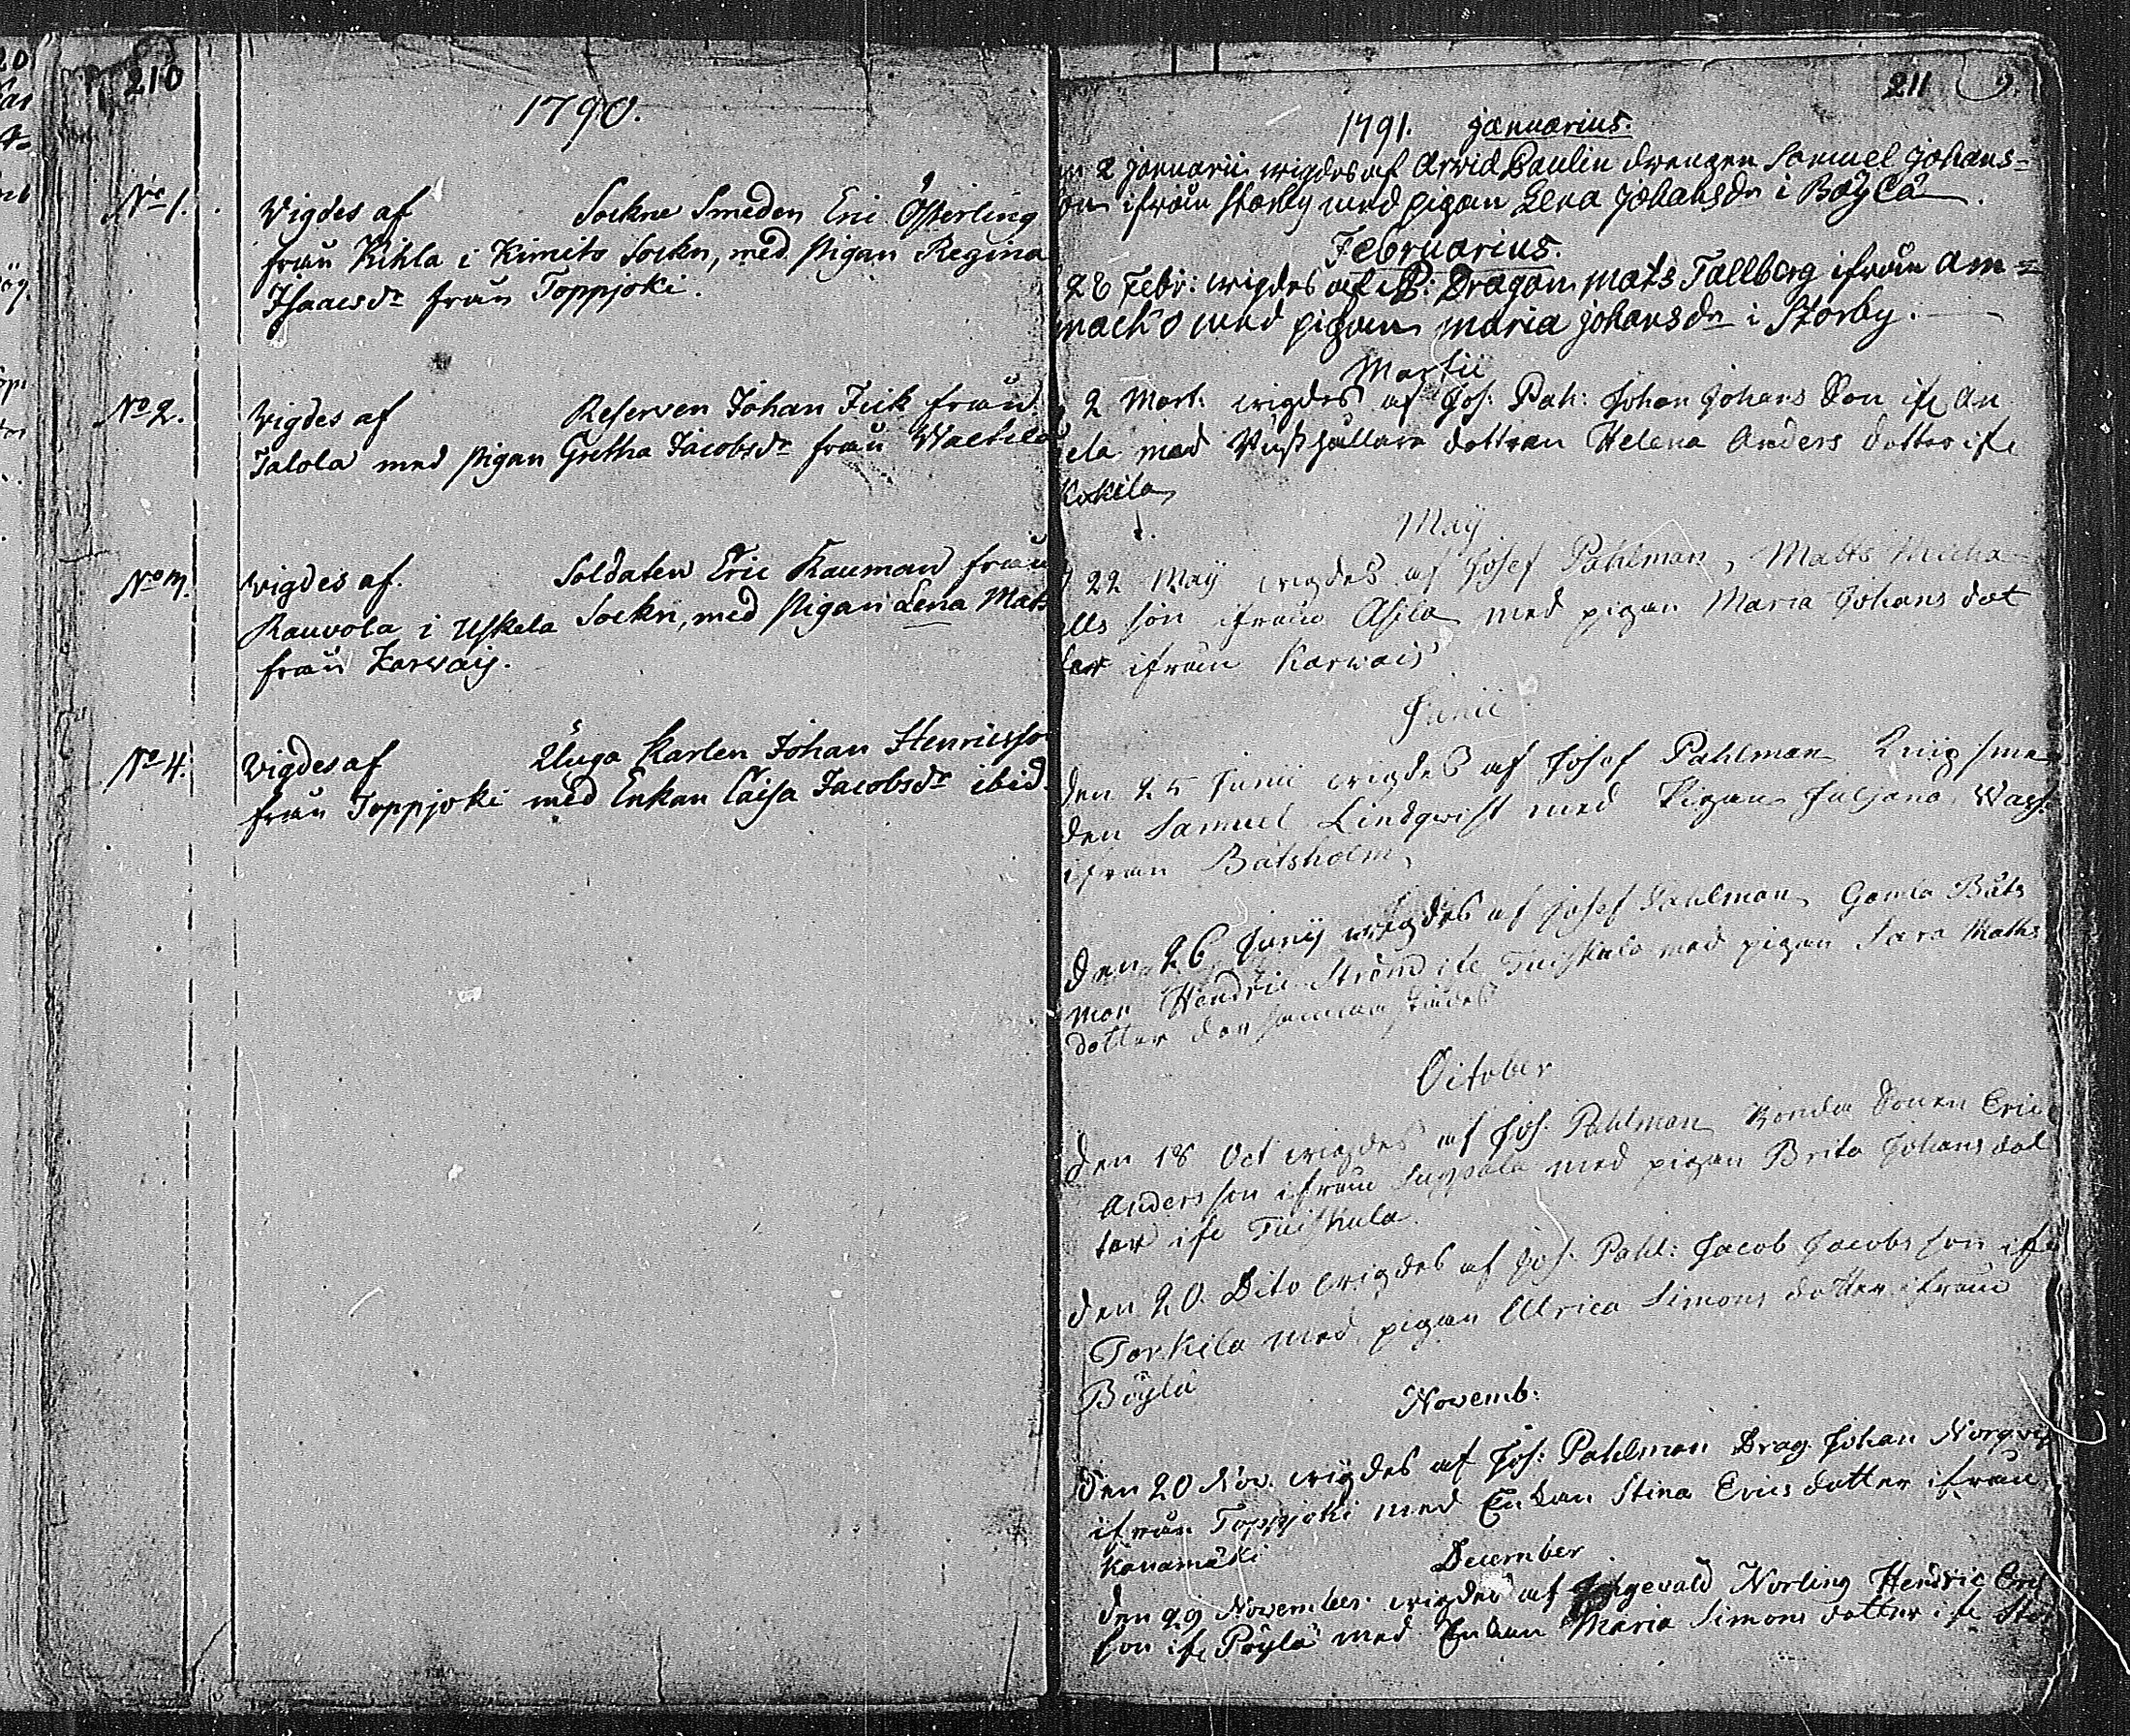 210
1790.
No 1. Vigdes af Sockne Smeden Eric Österling
från Kihla i Kimito Sockn, med pigan Regina
Isaacsdr från Toppjoki.
No 2. Vigdes af Reserven Johan Fick från
Jalola med pigan Gretha Jacobsdr från
No 3. Vigdes af. Soldaten Eric Rauman från
Rauvola i Uskela Sockn, med pigan Lena Mats
från Karvais.
No 4. Vigdes af Unga Karlen Johan Henricsso
från Toppjoki med Enkan Caisa Jacobsdr ibid.
211
1791. Januarius.
2 januarii wigdes af Arvid Paulin drengen Samuel Johans-
on ifrån Storby med pigan Lena Johansdr i Böylä.
Februarius.
28 Febr: wigdes af Dragon mats Tallberg ifrån am=
mach o med pigan maria johansdr i Storby.
Martii
2 Mart: wigdes af Jos: Pah: Johan Johans Son ifr An
ela med Rusthållare dottren Helena Anders dotter ifr
Kokila
Maij
22 Maij wigdes af Josef Pahlman, Matts Micha
ells son ifrån Asila med pigan Maria Johans dot
ter ifrån Karwais
Junii
den 25 Junii wigdes af Josef Pahlman sme
den Samuel Lindqwist med Pigan Juljana Wass
ifrån Båtsholm
den 26 Junij wigdes af Josef Pahlman Gamla Båts
man Hendric Strönd ifr Tuiskula med pigan Sara Maths
dotter der sammastädes
October
den 18 Oct wigdes af Jos. Pahlman Bonde Sonen Eric
Anders son ifrån Suppala med pigan Brita Johans dot
ter ifr Tuiskula.
den 20. Dito wigdes af Jos. Pahl: Jacob Jacobs son ifr
Torkila med pigan Ulrica Simons dotter ifrån
Böylä
Novemb:
Den 20 Nov. wigdes af Jos: Pahlman Drag Johan Norqvis
ifrån Toppjoki med Enkan Stina Erics dotter ifrån
Kanamäki
December
den 29 November wigdes af Ingevald Norling Hendric Eric
son ifr Pöylä med Enkan Maria Simons dotter ifr Stor